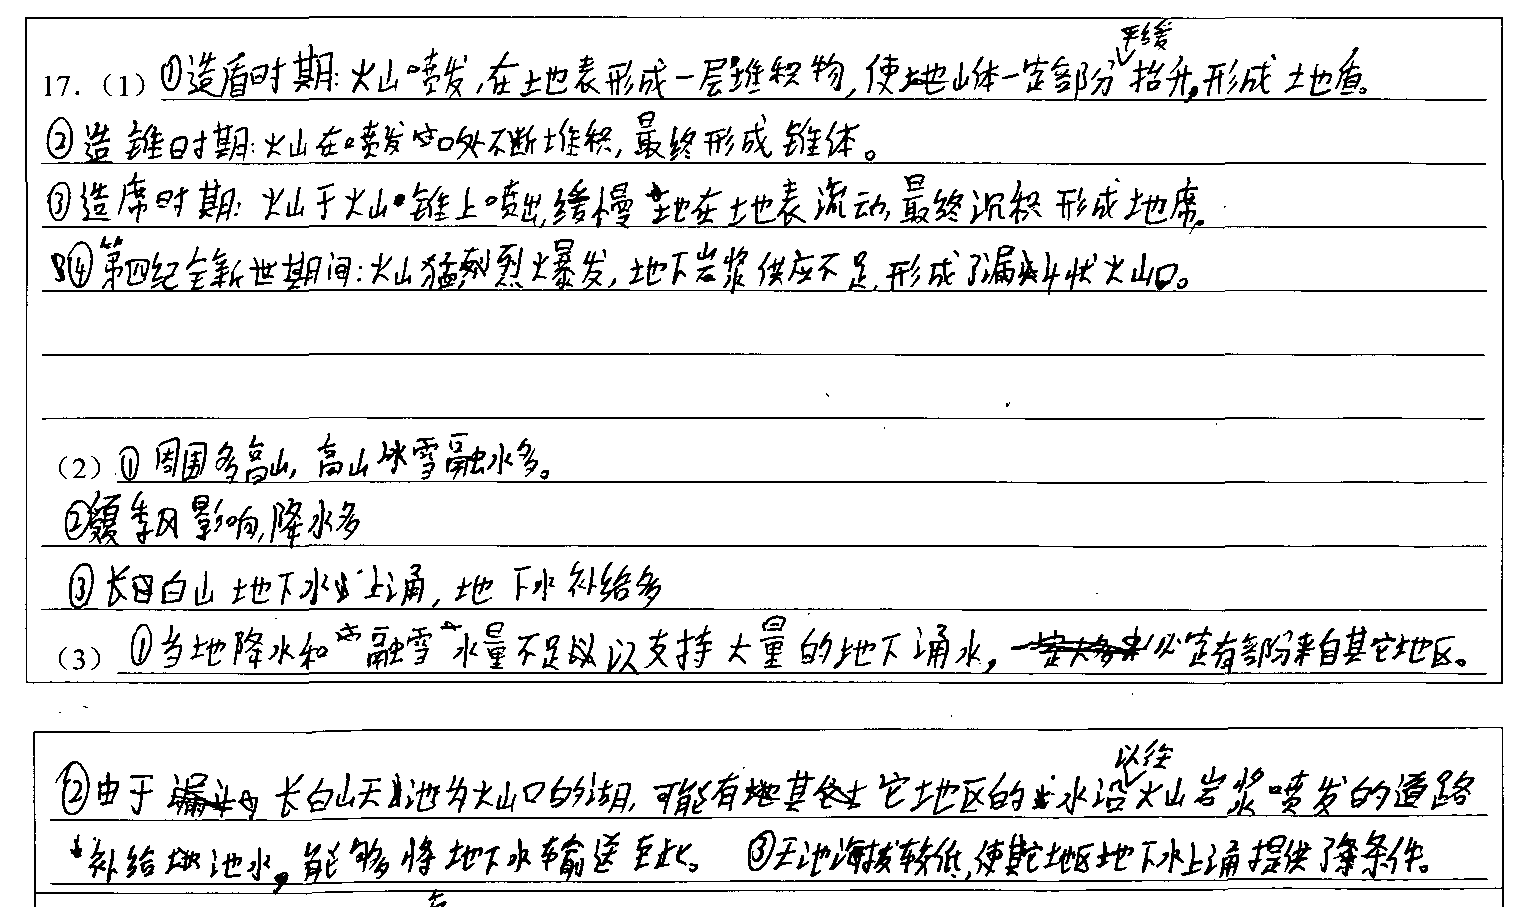 17.（1）①造盾时期：火山喷发，在土地表形成一层堆积物，使土地山体一定部分平缓抬升，形成土地盾。
②造锥时期：火山在喷发口处不断堆积，最终形成锥体。
③造席时期：火山于火山锥上喷出，缓慢地在土地表流动，最终沉积形成地席。
④第四纪全新世期间：火山猛烈爆发，地下岩浆供应不足，形成了漏斗状火山口。
（2）①周围多高山，高山冰雪融水多。
②夏季风影响，降水多
③长白山地下水上涌，地下水补给多
（3）①当地降水和融雪水量不足以支持大量的地下涌水，必定有部份来自其它地区。
②由于长白山天池为火山口的湖，可能有其它地区的水沿以往火山岩浆喷发的道路
补给池水，能够将地下水输送至此。 ③天池海拔较低，使其它地区地下水上涌提供了条件。